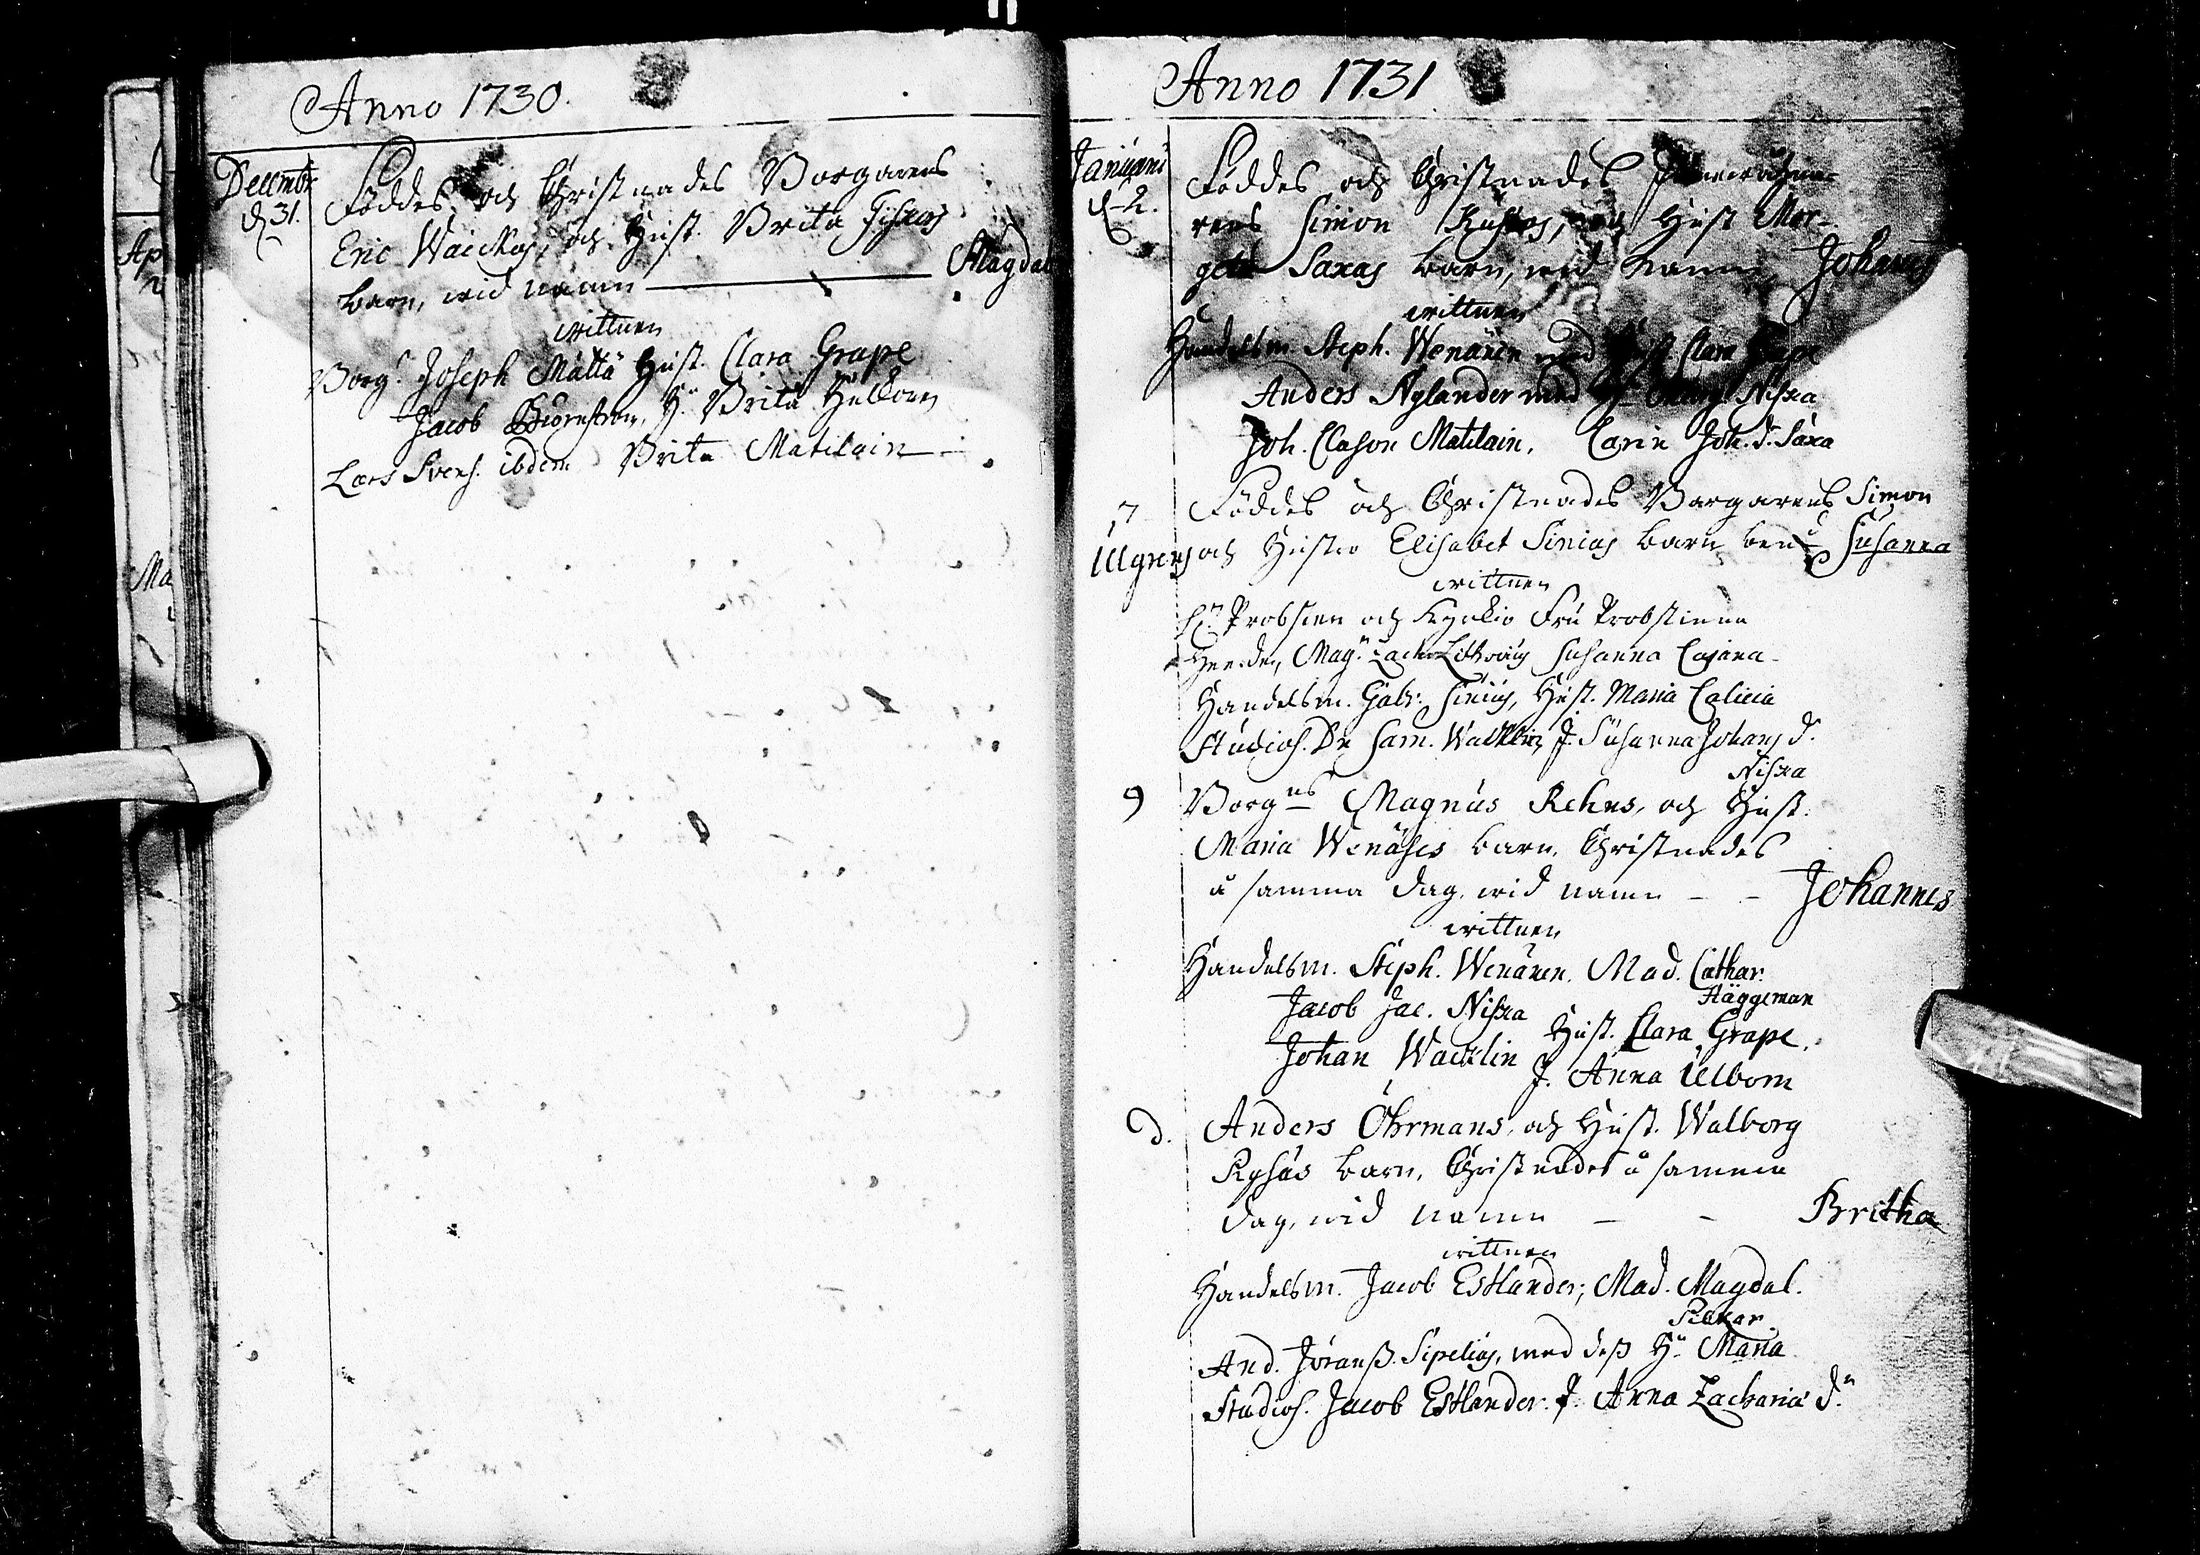 Anno 1730.
Decembr
d. 31.
Föddes och Christnades Borgarens
Eric Waickos, och Hust. Brita
barn, wid namn — Magdal
wittnen
Borg. Joseph Matta Hust. Clara Grape
Jacob Biörnström, H. Brita
Lars Svens. ibdem Brita Matilain
Ap
Ma
Anno 1731
Januarii
d. 2.
Föddes och Christnades
rens Simon och Hust Mar-
geta Saxas barn, wid namn Johannes
wittnen
Handelsm. Steph. Wenäxen med Hust Clara Grape
Anders Nylander med Niska
Joh. Clason Matilain. Carin Joh. d. Saxa
7
Föddes och Christnades Borgarens Simon
Ulgrens och Hustro Elisabet Sinius barn ben. Susanna
wittnen
H. Probsten och Kyrkio Fru Probstinnan
Herden, Mag. Zach. Susanna Cajana
Handelsm. Gabr. Sinius, Hust. Maria Calicia
Studios. Dn Sam. Wacklin, J. Susanna Johans d.
Niska
9
Borgns Magnus Rehns, och Hust.
Maria barn, Christnades
å samma dag, wid namn - - Johannes
wittnen
Handelsm. Steph. Wenäxen. Mad. Cathar.
Häggeman
Jacob Jac. Niska
Hust. Clara Grape.
Johan Wacklin
J. Anna Ulbom
d.
Anders Öhrmans, och Hust. Walborg
barn, Christnades å samma
dag, wid namn - - Britha
wittnen
Handelsm. Jacob Estlander; Mad. Magdal.
And. Joranß. Sipelius, med deß H. Maria
Studios. Jacob Estlander. J. Anna Zachariæ d.